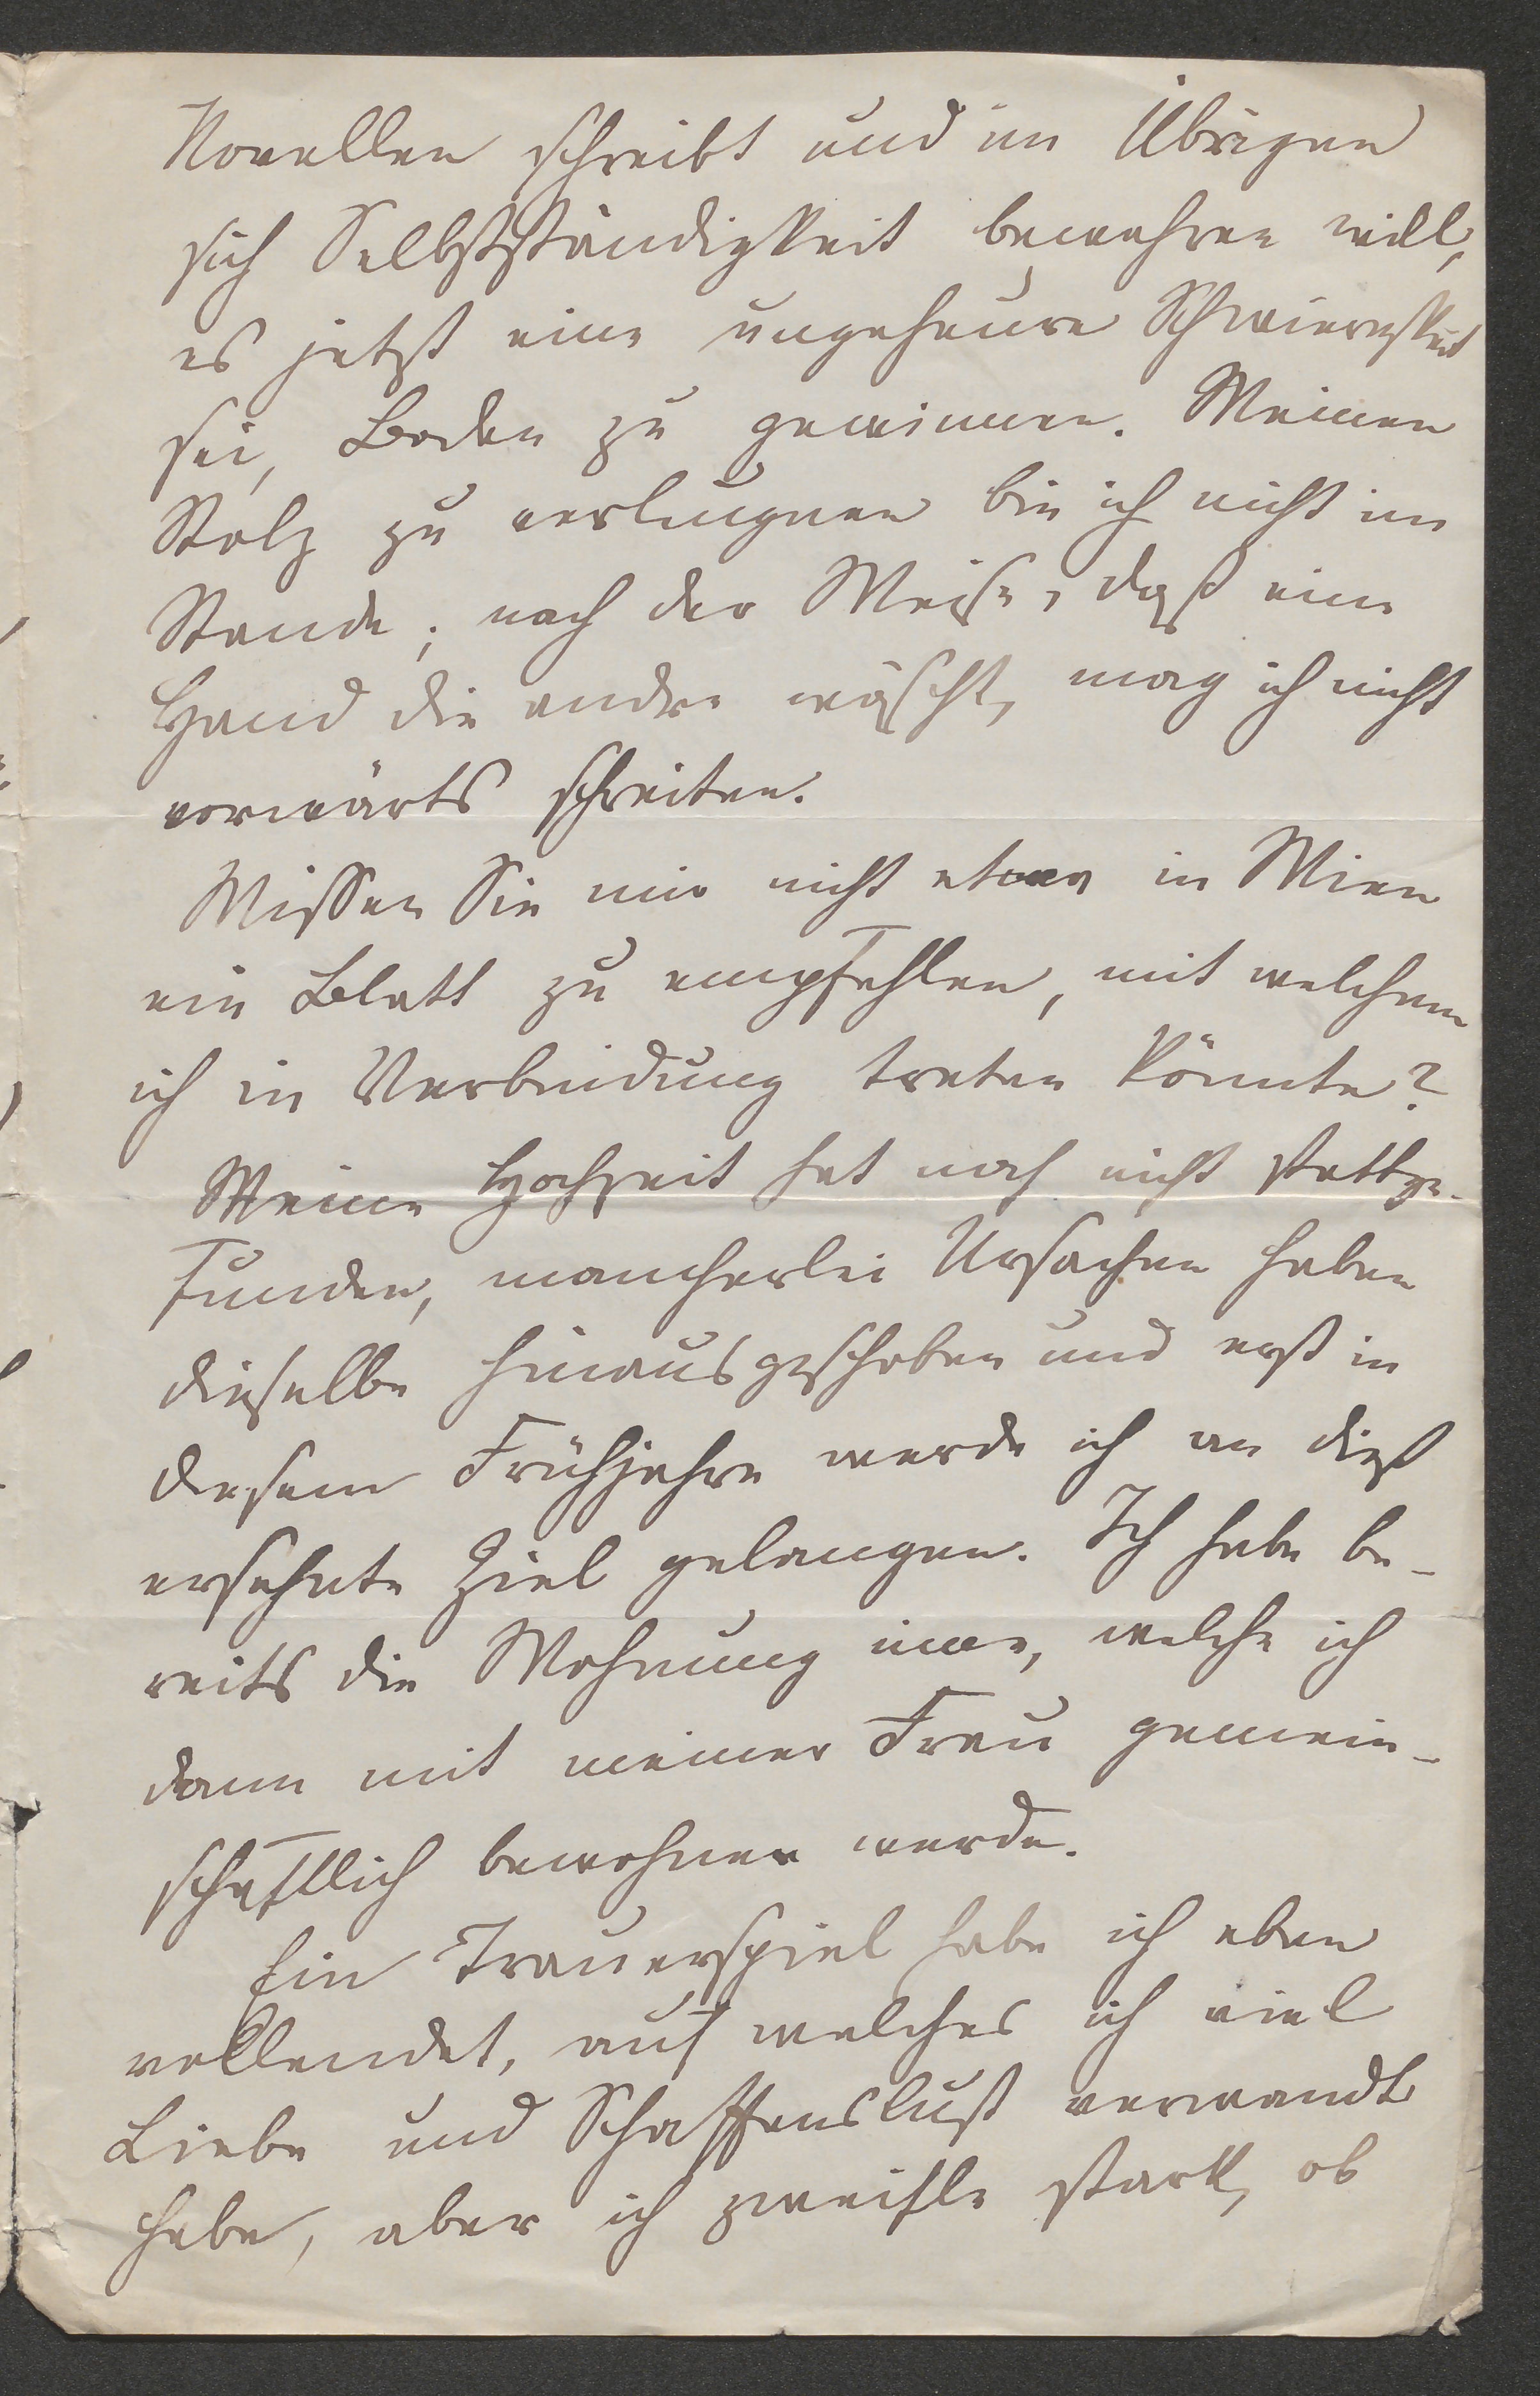 Novellen schreibt und im Übrigen
sich Selbstständigkeit bewahren will,
es jetzt eine ungeheure Schwierigkeit
sei, Boden zu gewinnen. Meinen
Stolz zu verleugnen bin ich nicht im
Stande; nach der Weise, daß eine
Hand die andre wäscht, mag ich nicht
vorwärts schreiten.
Wissen Sie mir nicht etwa in Wien
ein Blatt zu empfehlen, mit welchem
ich in Verbindung treten könnte?
Meine Hochzeit hat noch nicht stattge-
funden, mancherlei Ursachen haben
dieselbe hinausgeschoben und erst in
diesem Frühjahre werde ich an dieß
ersehnte Ziel gelangen. Ich habe be-
reits die Wohnung inne, welche ich
dann mit meiner Frau gemein-
schaftlich bewohnen werde.
Ein Trauerspiel habe ich eben
vollendet, auf welches ich viel
Liebe und Schaffenslust verwandt
habe, aber ich zweifle stark, ob